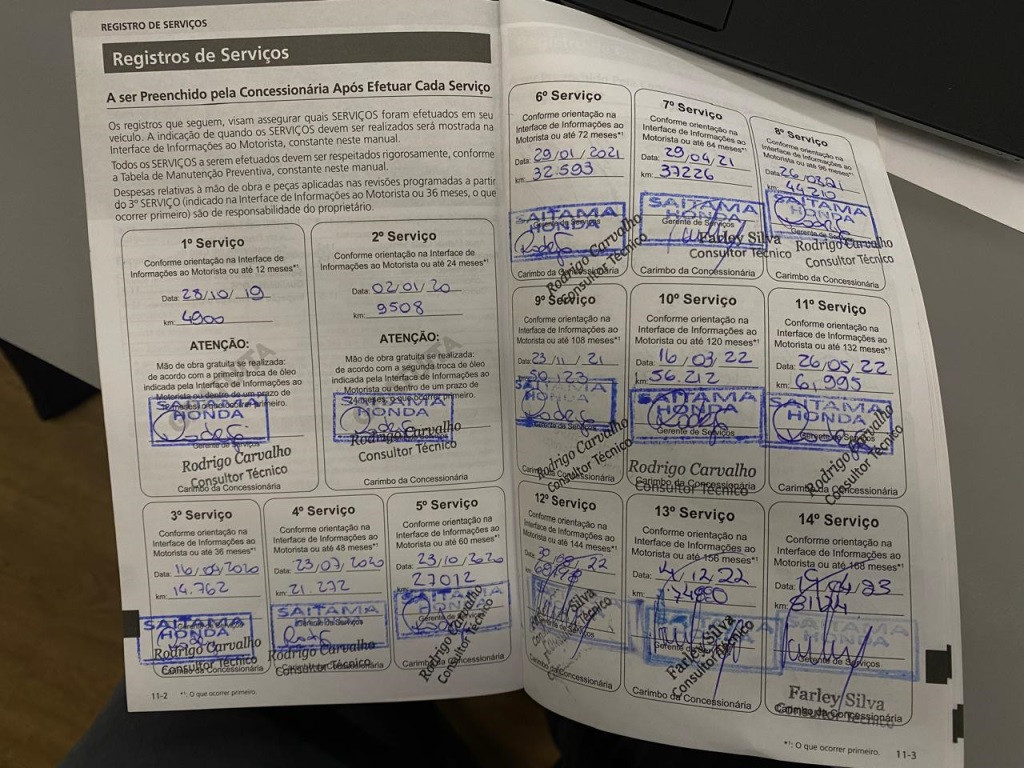 REGISTRO DE SERVIÇOS
Registros de Serviços
A ser Preenchido pela Concessionária Após Efetuar Cada Serviço
Os registros que seguem, visam assegurar quais SERVIÇOS foram efetuados em seu
veículo. A indicação de quando os SERVIÇOS devem ser realizados será mostrada na
Interface de Informações ao Motorista, constante neste manual.
Todos os SERVIÇOS a serem efetuados devem ser respeitados rigorosamente, conforme
a Tabela de Manutenção Preventiva, constante neste manual.
Despesas relativas à mão de obra e peças aplicadas nas revisões programadas a partir
do 3º SERVIÇO (indicado na Interface de Informações ao Motorista ou 36 meses, o que
ocorrer primeiro) são de responsabilidade do proprietário.
1º Serviço
Conforme orientação na Interface de
Informações ao Motorista ou até 12 meses*¹
Data: 28/10/19
km: 4900
ATENÇÃO:
Mão de obra gratuita se realizada:
de acordo com a primeira troca de óleo
indicada pela Interface de Informações ao
Motorista ou dentro de um prazo de
SAITAMA
HONDA
Gerente de Serviços
Rodrigo Carvalho
Consultor Técnico
Carimbo da Concessionária
2º Serviço
Conforme orientação na Interface de
Informações ao Motorista ou até 24 meses*¹
Data: 02/01/20
km: 9508
ATENÇÃO:
Mão de obra gratuita se realizada:
de acordo com a segunda troca de óleo
indicada pela Interface de Informações ao
Motorista ou dentro de um prazo de
24 meses, o que ocorrer primeiro.
SAITAMA
HONDA
Rodrigo Carvalho
Consultor Técnico
Carimbo da Concessionária
3º Serviço
Conforme orientação na
Interface de Informações ao
Motorista ou até 36 meses*¹
Data: 16/04/2020
km: 14.762
SAITAMA
HONDA
Rodrigo Carvalho
Consultor Técnico
Carimbo da Concessionária
4º Serviço
Conforme orientação na
Interface de Informações ao
Motorista ou até 48 meses*¹
Data: 23/07/2020
km: 21.272
SAITAMA
Gerente de Serviços
Rodrigo Carvalho
Consultor Técnico
Carimbo da Concessionária
5º Serviço
Conforme orientação na
Interface de Informações ao
Motorista ou até 60 meses*¹
Data: 23/10/2020
km: 27012
SAITAMA
HONDA
Rodrigo Carvalho
Consultor Técnico
Carimbo da Concessionária
11-2
*¹: O que ocorrer primeiro.
6º Serviço
Conforme orientação na
Interface de Informações ao
Motorista ou até 72 meses*¹
Data: 29/01/2021
km: 32.593
SAITAMA
HONDA
Rodrigo Carvalho
Consultor Técnico
Carimbo da Concessionária
7º Serviço
Conforme orientação na
Interface de Informações ao
Motorista ou até 84 meses*¹
Data: 29/04/21
km: 37226
SAITAMA
HONDA
Farley Silva
Consultor Técnico
Carimbo da Concessionária
8º Serviço
Conforme orientação na
Interface de Informações ao
Motorista ou até 96 meses*¹
Data: 26/08/21
km: 44210
SAITAMA
HONDA
Gerente de Serviços
Rodrigo Carvalho
Consultor Técnico
Carimbo da Concessionária
9º Serviço
Conforme orientação na
Interface de Informações ao
Motorista ou até 108 meses*¹
Data: 23/11/21
50.123
SAITAMA
HONDA
Rodrigo Carvalho
Consultor Técnico
10º Serviço
Conforme orientação na
Interface de Informações ao
Motorista ou até 120 meses*¹
Data: 16/03/22
km: 56.212
SAITAMA
HONDA
Gerente de Serviços
Rodrigo Carvalho
Consultor Técnico
Carimbo da Concessionária
11º Serviço
Conforme orientação na
Interface de Informações ao
Motorista ou até 132 meses*¹
Data: 26/05/22
km: 61,995
SAITAMA
HONDA
Gerente de Serviços
Rodrigo Carvalho
Consultor Técnico
Carimbo da Concessionária
12º Serviço
Conforme orientação na
Interface de Informações ao
Motorista ou até 144 meses*¹
Carimbo da Concessionária
13º Serviço
Conforme orientação na
Interface de Informações ao
Motorista ou até 156 meses*¹
Data: 14/12/22
km:
Gerente de Serviços
Farley Silva
Consultor Técnico
Carimbo da Concessionária
14º Serviço
Conforme orientação na
Interface de Informações ao
Motorista ou até 168 meses*¹
Data:
km: 81124
SAITAMA
HONDA
Gerente de Serviços
Farley Silva
Consultor Técnico
Carimbo da Concessionária
*¹: O que ocorrer primeiro.
11-3